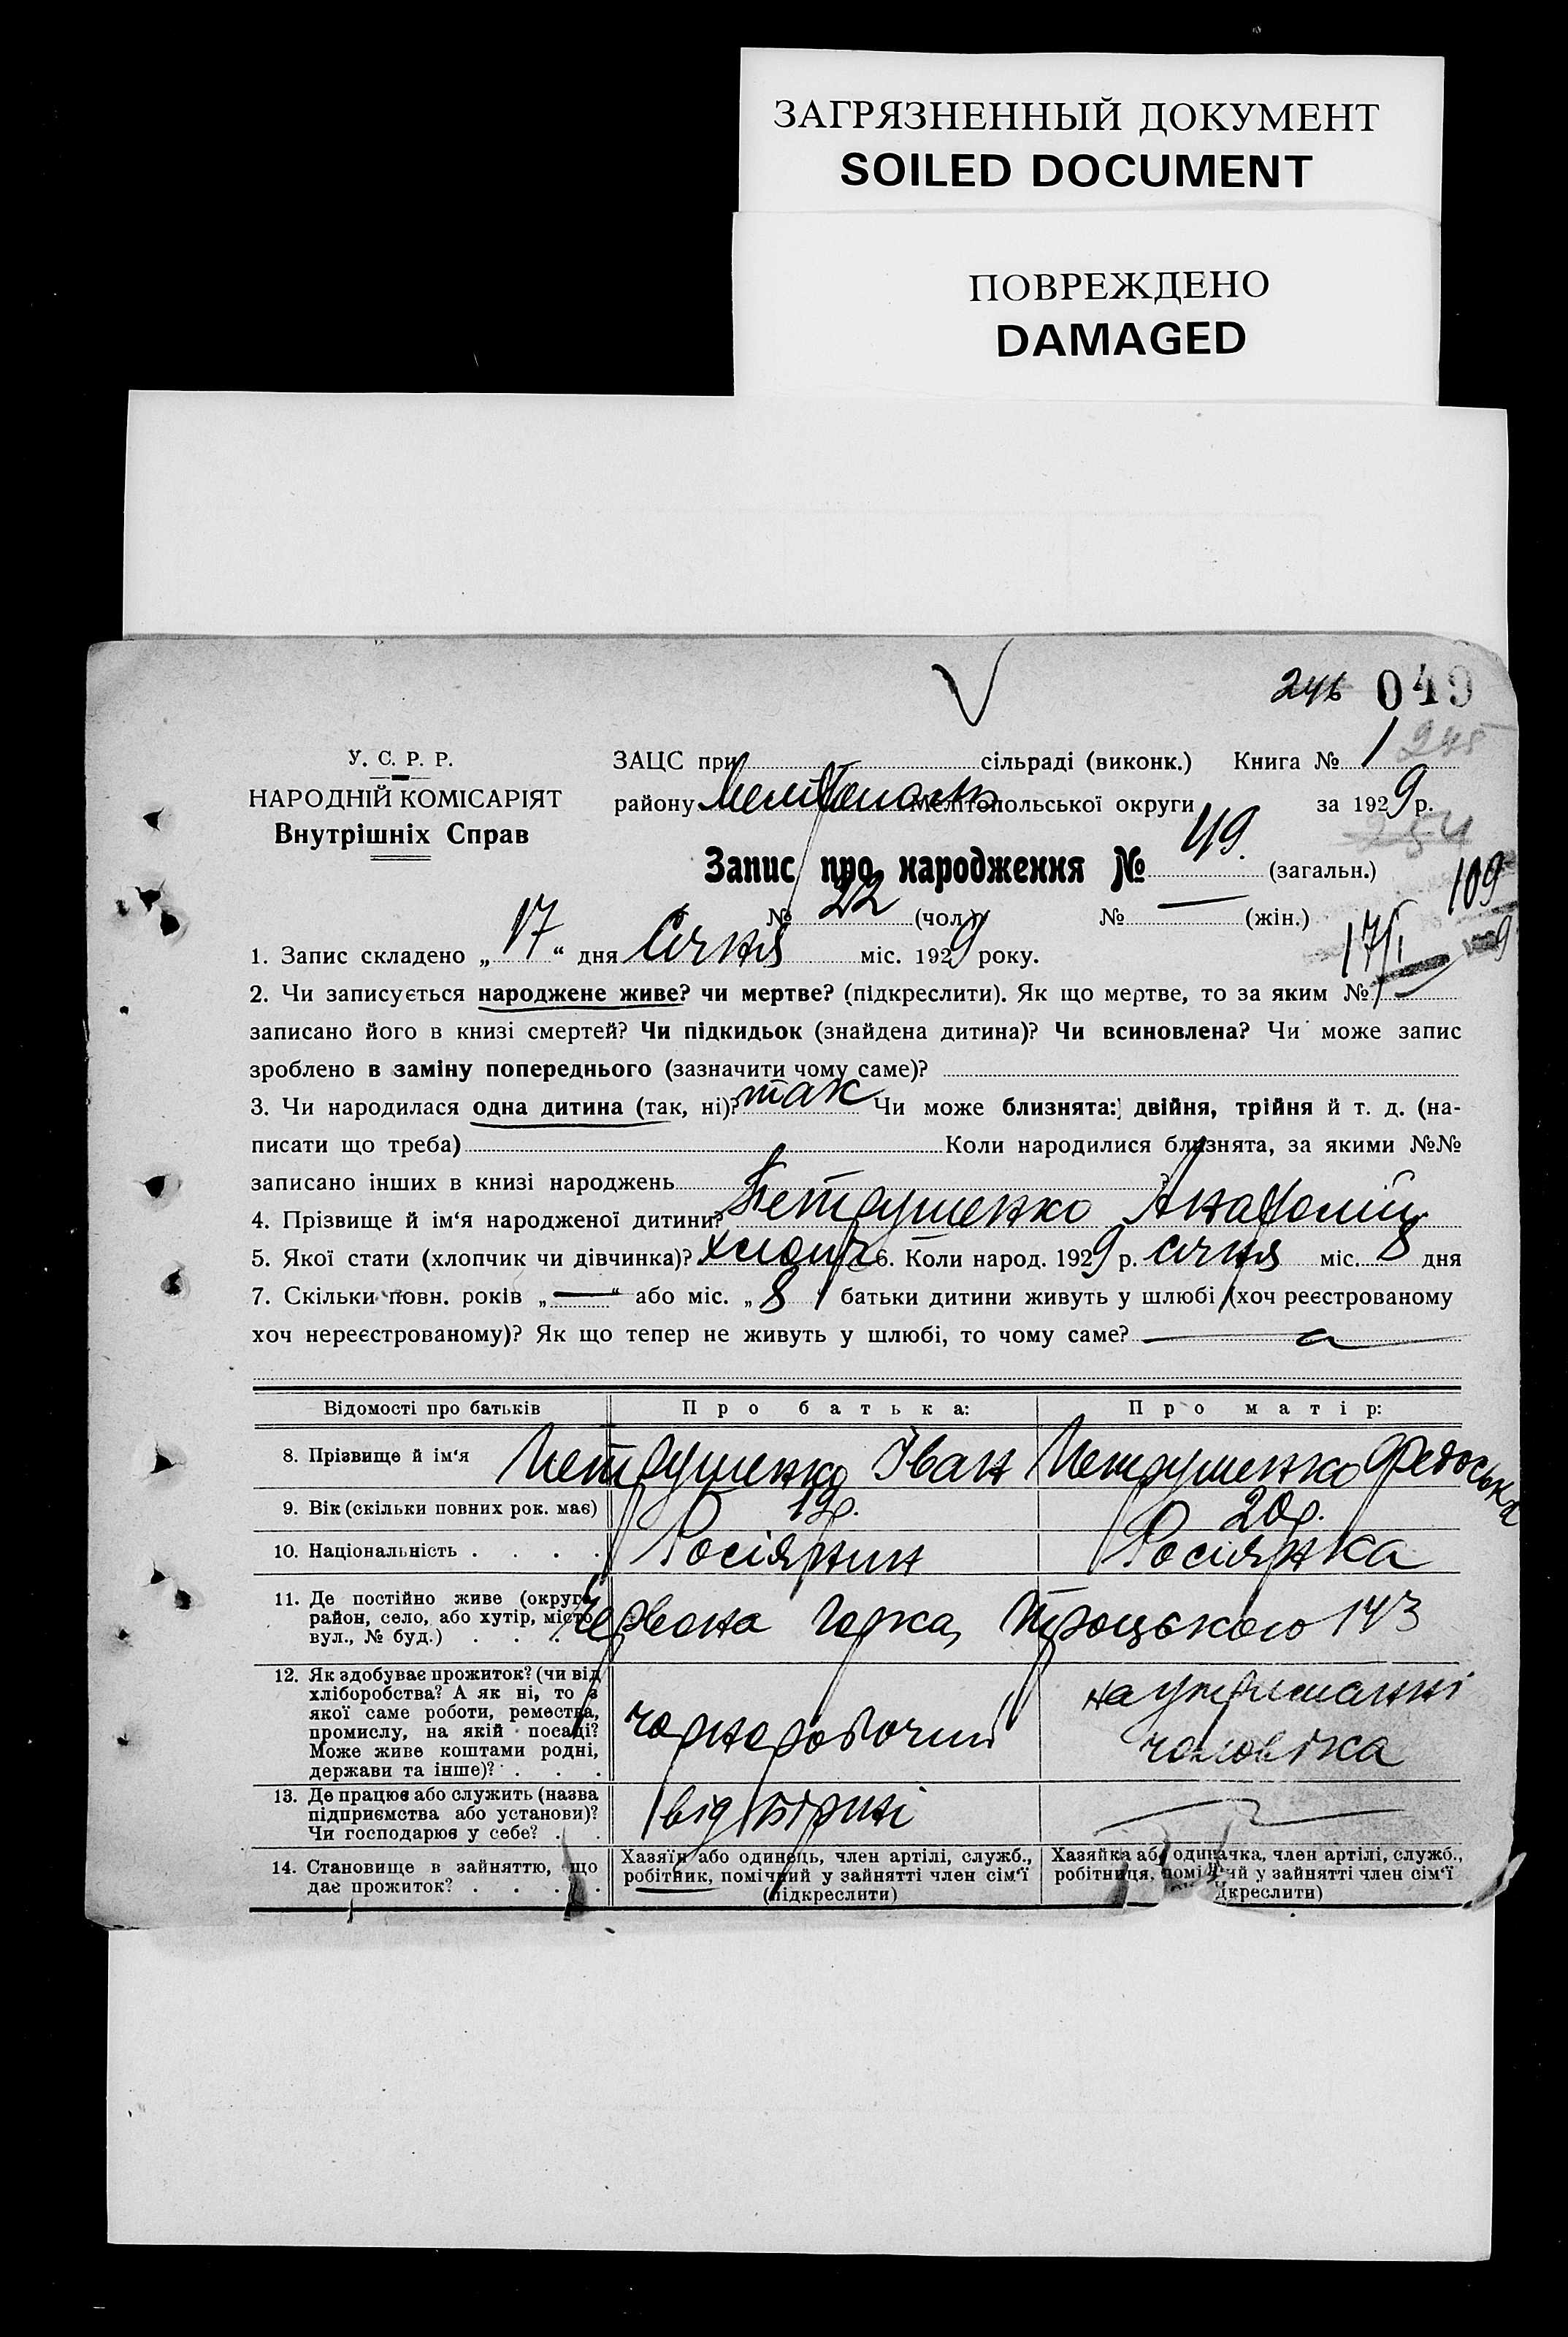 ЗАГРЯЗНЕННЫЙ ДОКУМЕНТ
SOILED DOCUMENT
ПОВРЕЖДЕНО
DAMAGED
246 049
У. С. Р. Р.
НАРОДНІЙ КОМІСАРІЯТ
Внутрішніх Справ
ЗАЦС при сільраді (виконк.) Книга № 1 245
району Мелітополь Мелітопольської округи за 1929 р.
254
Запис про народження № 49. (загальн.)
109
№ 22 (чол.) № — (жін.)
17/I 9
1. Запис складено „17“ дня Січня міс. 1929 року.
2. Чи записується народжене живе? чи мертве? (підкреслити). Як що мертве, то за яким №
записано його в книзі смертей? Чи підкидьок (знайдена дитина)? Чи всиновлена? Чи може запис
зроблено в заміну попереднього (зазначити чому саме)?
3. Чи народилася одна дитина (так, ні)? так Чи може близнята: двійня, трійня й т. д. (на-
писати що треба) Коли народилися близнята, за якими №№
записано інших в книзі народжень
4. Прізвище й ім‘я народженої дитини? Петрушенко Анатолій
5. Якої стати (хлопчик чи дівчинка)? хлопч 6. Коли народ. 1929 р. січня міс. 8 дня
7. Скільки повн. років „—“ або міс. „8“ батьки дитини живуть у шлюбі (хоч реєстрованому
хоч нереєстрованому)? Як що тепер не живуть у шлюбі, то чому саме?
Відомості про батьків Про батька: Про матір:
8. Прізвище й ім‘я Петрушенко Іван Петрушенко Федоська
9. Вік (скільки повних рок. має) 19р. 20р.
10. Національність . . . . Росіянин Росіянка
11. Де постійно живе (округа,
район, село, або хутір, місто,
вул., № буд.) . . . .
Червона Горка, Троцького 143
12. Як здобуває прожиток? (чи від
хліборобства? А як ні, то з
якої саме роботи, ремества,
промислу, на якій посаді?
Може живе коштами родні,
держави та інше)? . . .
чорноробочий
на утриманні
чоловіка
13. Де працює або служить (назва
підприємства або установи)?
Чи господарює у себе? . .
від біржі
14. Становище в зайняттю, що
дає прожиток? . . . . .
Хазяїн або одинець, член артілі, служб.,
робітник, помічний у зайнятті член сім‘ї
(підкреслити)
Хазяйка або одиначка, член артілі, служб.,
робітниця, помічний у зайнятті член сім‘ї
дкреслити)